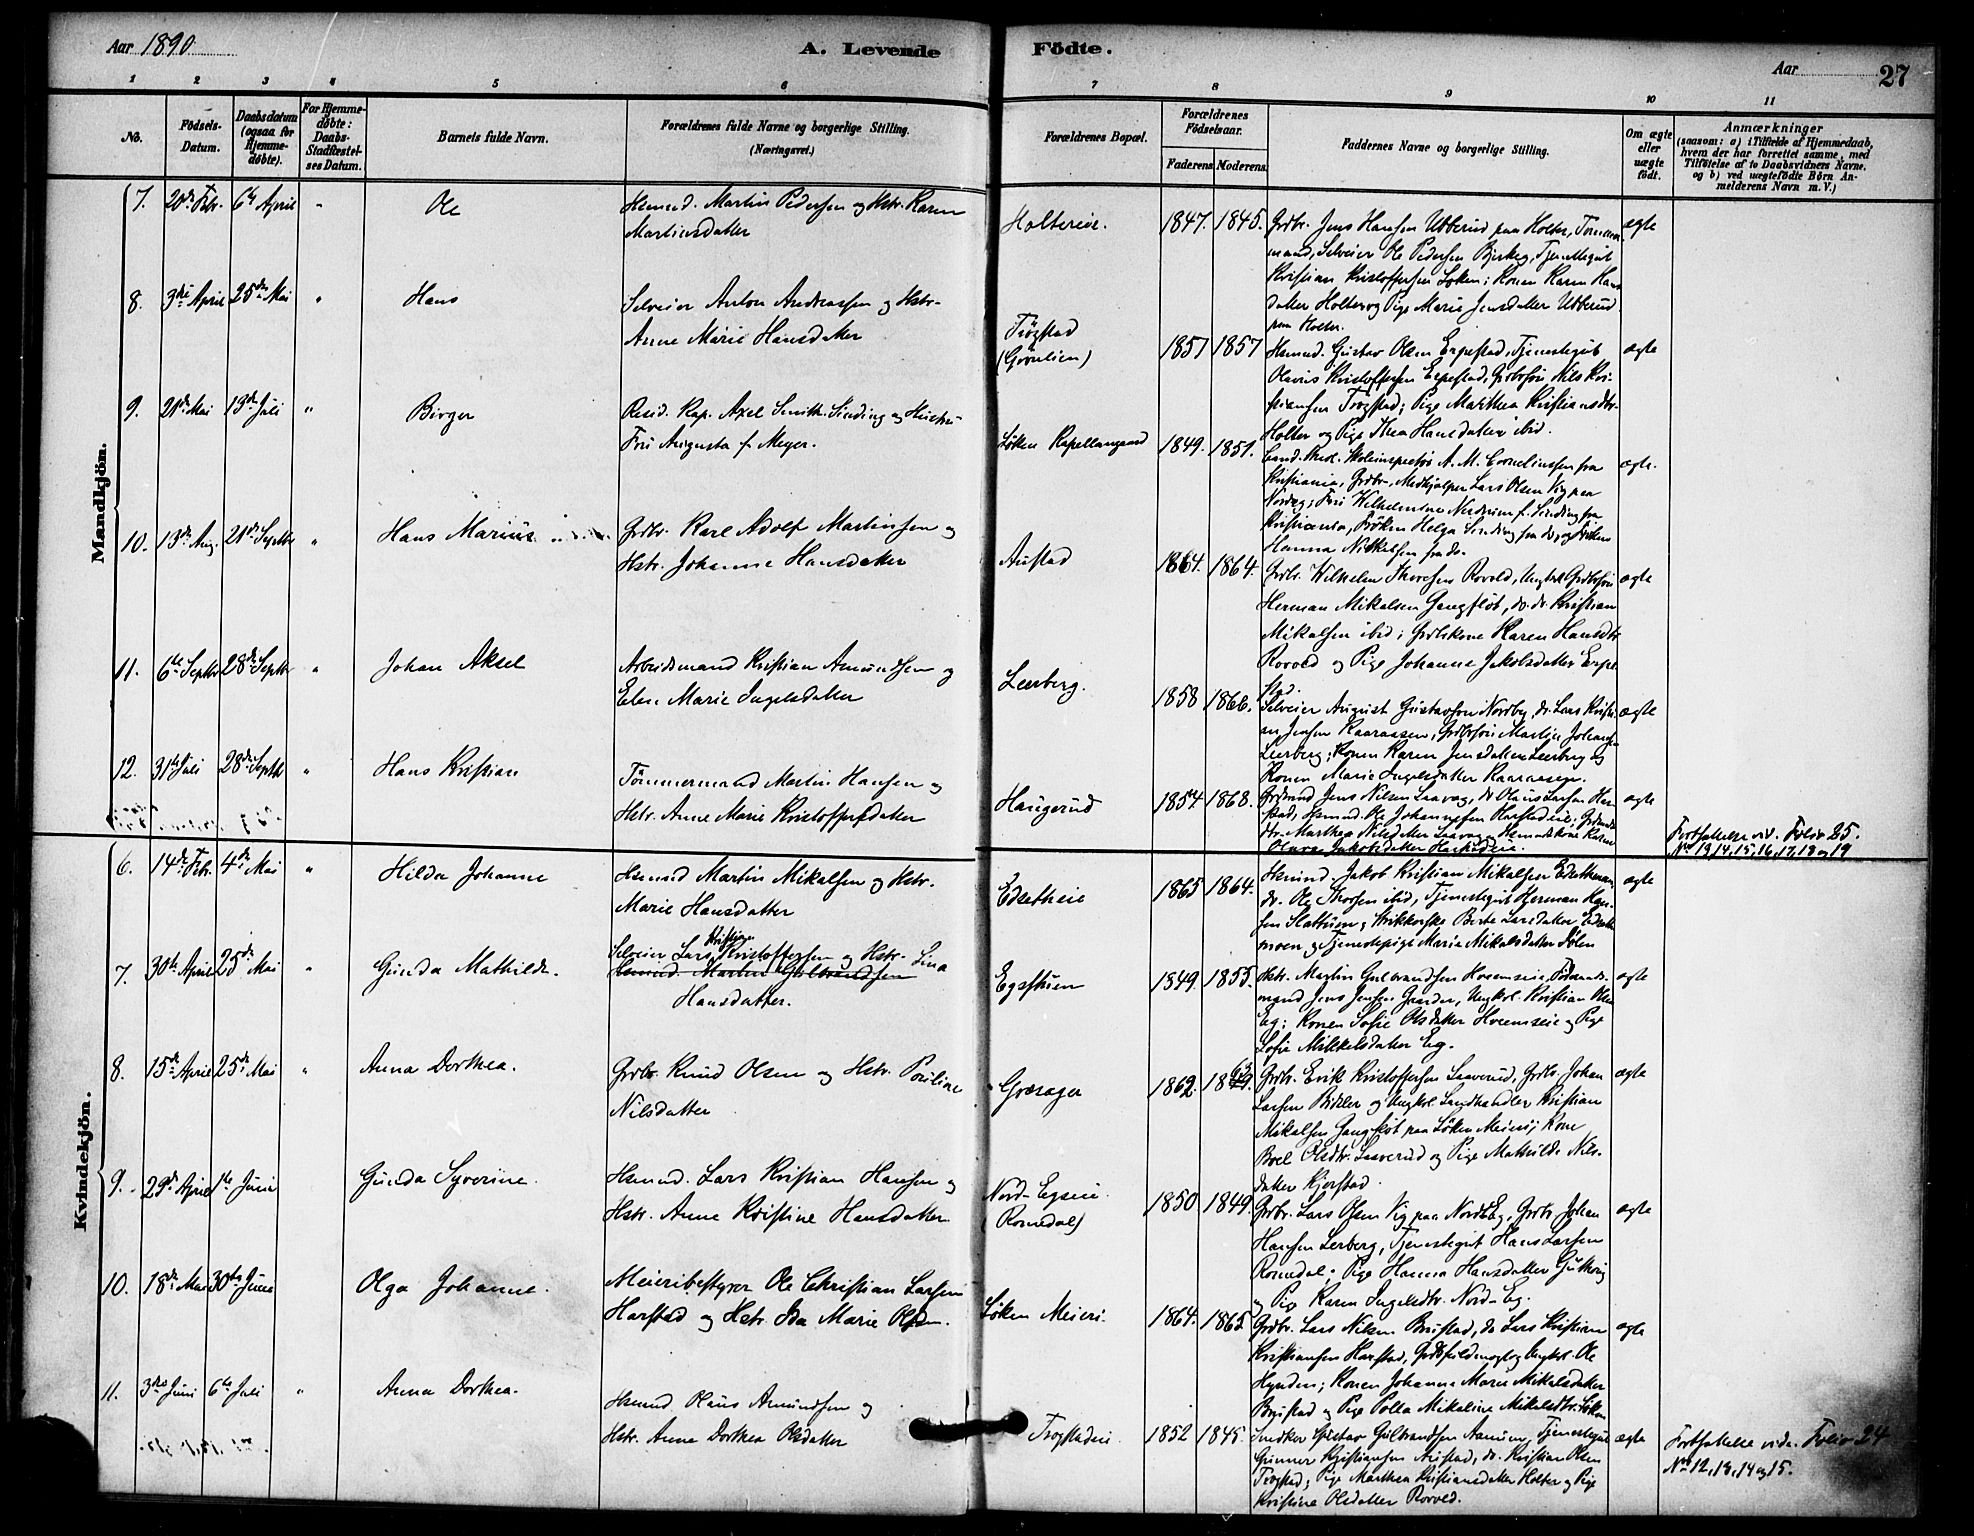 Aar 1890
A. Levende Födte.
Aar 27
1 2 3 4 5 6 7 8 9 10 11
No.
Födsels-Datum.
Daabsdatum (ogsaa for Hjemmedøbte).
For Hjemmedøbte: Daabs-Stadfæstelses Datum.
Barnets fulde Navn.
Forældrenes fulde Navne og borgerlige Stilling. (Næringsvei.)
Forældrenes Bopæl.
Forældrenes Födselsaar.
Faderens Moderens.
Faddernes Navne og borgerlige Stilling.
Om ægte eller uægte födt.
Anmærkninger
(saasom: a) i Tilfælde af Hjemmedaab, hvem der har forrettet samme, med Tilföielse af to Daabsvidners Navne. og b) ved uægtefödte Börn Anmelderens Navn m. V.)
Mandkjön.
7. 20de Febr. 6te April " Ole
Hsmnd. Martin Pedersen og Hstr. Karen
Martinsdatter
Holtereie. 1847. 1845.
Grdbr. Jens Hansen Ubberud paa Holter, Tømmer-
mand, Selveier Ole Pedersen Bjerkeg, Tjenestegut
Kristian Kristoffersen Løken; Konen Karen Hans
datter Holter og Pige Marie Jensdatter Ubberud
paa Holter.
ægte
8. 3die April 25de Mai " Hans
Selveier Anton Andreassen og Hstr.
Anne Marie Hansdatter
Trøgstad
(Gornlien) 1851 1857
Hsmnd. Gustav Olsen Erpestad, Tjenestegut
Olavus Kristoffersen Erpestad, Grdbrsøn Nils Kri-
stiansen Trøgstad; Pige Mathea Kristiansdtr.
Holter og Pige Thea Hansdatter ibid.
ægte
9. 21de Mai 13de Juli " Birger
Resid. Kap. Axel Smith Sinding og Hustru
Fru Augusta f. Meyer.
Løken Kapellangaard 1849. 1851.
Cand. theol. Skoleinspectør A. M. Corneliussen fra
Kristiania, Grdbr., Medhjælper Lars Olsen Vig paa
Nordeg; Fru Wilhelmine Nerdrum f. Sinding fra
Kristiania, Frøken Helga Sinding fra do, og Frøken
Hanna Nikkelsen fra do.
ægte.
10. 13de Aug. 21de Septbr " Hans Marius
Grdbr. Karl Adolf Martinsen og
Hstr. Johanne Hansdatter
Austad 1864. 1864.
Grdbr. Wilhelm Thoresen Rovold, Ungkl Grdbrsøn
Herman Mikalsen Gangfløt, do. do. Kristian
Mikalsen ibid; Grdbrkone Karen Hansdtr
Rovold og Pige Johanne Jakobsdatter Erpe
stad.
ægte
11. 6te Septbr 28de Septbr " Johan Aksel
Arbeidsmand Kristian Amundsen og
Elen Marie Ingelsdatter
Leerberg. 1858 1866.
Selveier August Gustavsen Nordby, do. Lars Kristi-
an Jensen Kaaraasen, Grdbrsøn Martin Johansen
Leerberg; Konen Karen Jensdatter Leerberg og
Konen Marie Ingelsdatter Kaaraasen.
ægte
12. 31te Juli 28de Septbr " Hans Kristian
Tømmermand Martin Hansen og
Hstr. Anne Marie Kristoffersdatter
Haugerud 1854 1868.
Grdmand Jens Nilsen Laaveg, do Olaus Larsen Har-
stad, Hsmnd. Ole Johannesen Harstadeie; Grdmands
dtr. Marthea Nilsdatter Laaveg og Hsmandskone Karen
Olava Jakobsdatter Harstadeie.
ægte
Fortsættelse vid. Folio 25.
No. 13, 14, 15, 16, 17, 18 og 19
Kvindekjön.
6. 14de Febr. 4de Mai " Hilda Johanne
Hsmnd Martin Mikalsen og Hstr.
Marie Hansdatter
Edsetheie 1865 1864.
Hsmnd. Jakob Kristian Mikalsen Edsethmoen,
do. Ole Thorsen ibid, Tjenestegut Herman Han-
sen Slattum; Strikkerske Berte Larsdatter Edseth
moen og Tjenestepige Maria Mikalsdatter Dølen
ægte
7. 30te April 25de Mai " Gunda Mathilde.
Selveier Lars Kristian Kristoffersen og Hstr. Lina
Hsmnd. Martin Gulbrandsen
Hansdatter.
Egsthuen 1849. 1855.
Hstr. Martin Gulbrandsen Hoemseie, Føderaads-
mand Jens Jensen Gaarder, Ungkl. Kristian Olsen
Eg; Konen Sofie Olsdatter Hoemseie og Pige
Sofie Mikkelsdatter Eg.
ægte
8. 15de April 25de Mai " Anna Dorthea.
Grdbr. Knud Olsen og Hstr. Pauline
Nilsdatter
Goverager 1862. 1863.
Grdbr. Erik Kristoffersen Laaverud, Grdbr. Johan
Larsen Bidler og Ungkl. Landhandler Kristian
Mikalsen Gangfløt paa Løken Meieri; Kone
Boel Olsdtr. Laaverud og Pige Mathilde Nils-
datter Kjerstad.
ægte
9. 29de April 1te Juni Gunda Syverine.
Hsmnd. Lars Kristian Hansen og
Hstr. Anne Kristine Hansdatter
Nord-Egseie.
(Romedal) 1850 1849.
Grdbr. Lars Olsen Vig paa Nordeg, Grdbr. Johan
Hansen Lerberg, Tjenestegut Hans Larsen
Romedal; Pige Hanna Hansdatter Guthus
og Pige Karen Ingelsdtr. Nord-Eg.
ægte
10. 18de Mai 30te Juni Olga Johanne.
Meieribestyrer Ole Christian Larsen
Harstad og Hstr. Ida Marie Olsdtr.
Løken Meieri. 1864. 1865
Grdbr. Lars Nilsen Brustad, do Lars Kristian
Kristiansen Harstad, Grdsfuldmægtig Ungkl. Ole
Hynden; Konen Johanne Marie Mikalsdatter
Brustad og Pige Polla Mikaline Mikalsdtr. Løken
ægte
11. 3die Juni 6te Juli " Anna Dorthea.
Hsmnd Olaus Amundsen og
Hstr. Anna Dorthea Olsdatter
Trøgstadeie 1852 1845.
Snedker Gustav Gulbrandsen Aamum, Tjenestegut
Gunner Kristiansen Austad, do. Kristian Olsen
Trøgstad; Pige Marthea Kristiansdatter Holter og Pige
Kristine Olsdatter Rovold.
ægte
Fortsættelse vide. Folio 24
No. 12, 13, 14 og 15.